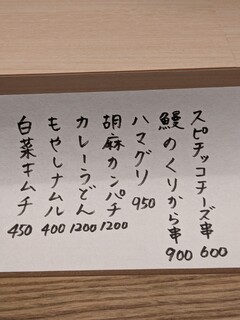 スピチッコチーズ串 600
鰻のくりから串 900
ハマグリ 950
胡麻カンパチ 1200
カレーうどん 1200
もやしナムル 400
白菜キムチ 450